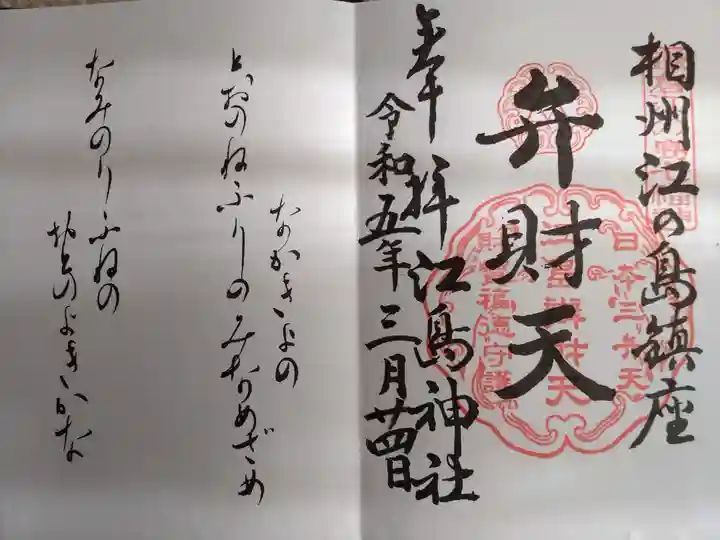 相州江の島鎮座
弁財天
奉拝 江島神社
令和五年三月廿四日
日本三弁天
財宝福徳守護
なかきよの
とおのねふりのみなめざめ
なみのりふねの
おとのよきかな